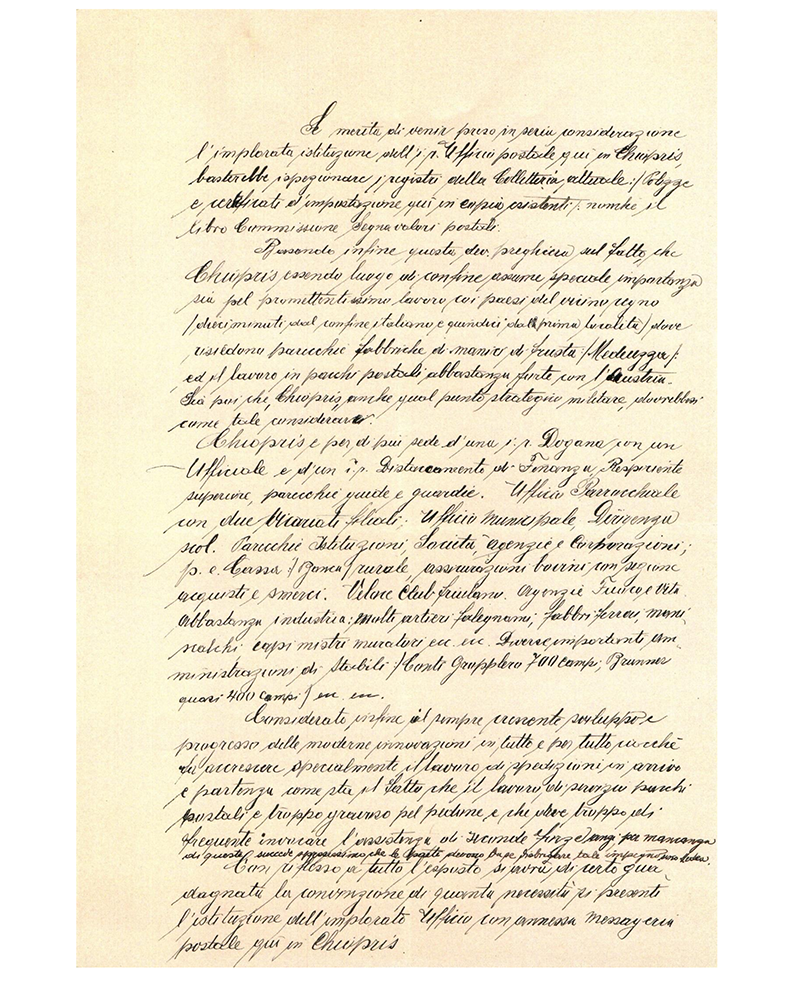 Se merita di venir preso in seria considerazione
l'implorata istituzione dell'i. r. Ufficio postale qui in Chiopris
basterebbe ispezionare i registri della Colletteria attuale :/ Polizze
e certificati d'impostazione qui in copia esistenti /: nonchè il
libro Commissione Segna valori postali.
Basando infine questa dev. preghiera sul fatto, che
Chiopris, essendo luogo di confine assume speciale importanza
sia pel promettentissimo lavoro coi paesi del vicino regno
/ dieci minuti dal confine italiano, e quindici dalla prima località / dove
risiedono parecchie fabbriche di manici di frusta :/ Medeuzza /:
ed il lavoro in pacchi postali abbastanza forte con l'Austria.
Sia poi che, Chiopris, anche qual punto strategico militare, dovrebbesi
come tale considerare.
Chiopris è per di più sede d'una i. r. Dogana con un
Ufficiale e d'un i. r. Distaccamento di Finanza, Respiciente
superiore, parecchie guide e guardie. Ufficio Parrocchiale
con due Vicariati filiali; Ufficio Municipale, Dirigenza
scol. Parecchie Istituzioni, Società, agenzie e Corporazioni;
p. e. Cassa :/ Banca / rurale, assicurazioni bovini con sezione
acquisti e smerci. Veloce Club friulano. Agenzie Fuoco e Vita
Abbastanza industria; molti artieri falegnami, fabbri ferrai, mani
scalchi capi mistri muratori ecc. ecc. Diverse importanti am-
ministrazioni di Stabili :/ Conti Gruppllero 700 campi; Brunner
quasi 400 campi / ecc. ecc.
Considerato infine il sempre crescente sviluppo e
progresso delle moderne innovazioni in tutto e per tutto, ciocchè
fà accrescere specialmente il lavoro di spedizioni in arrivo
e partenza come sta il fatto che il lavoro di servizio pacchi
postali è troppo gravoso pel pedone e che deve troppo di
frequente invocare l'assistenza di seconde forze, anzi per mancanza
di queste, succede spessissimo che le devono tale impegno
Con riflesso a tutto l'esposto si avrà di certo gua-
dagnata la convinzione di quanta necessità si presenti
l'istituzione dell'implorato Ufficio con annessa Messageria
postale qui in Chiopris